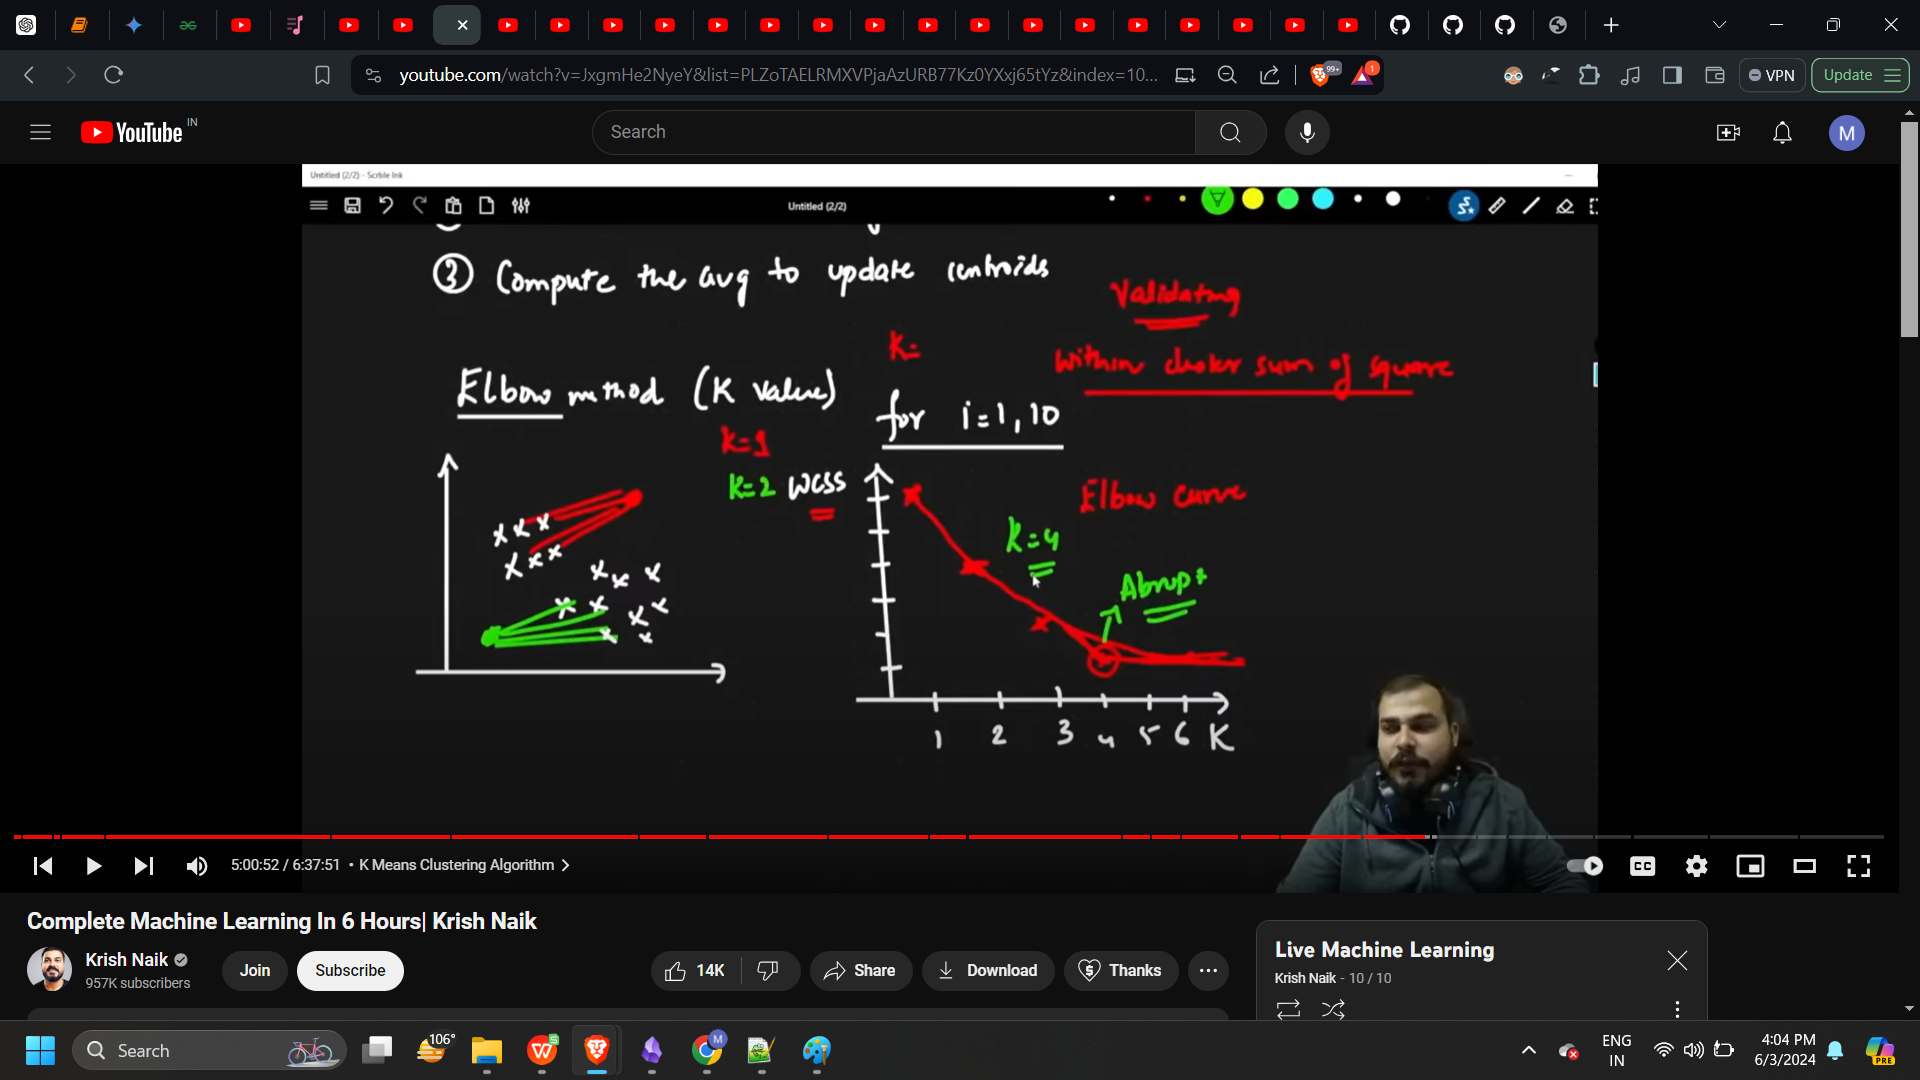 youtube.com/watch?v=JxgmHe2NyeY&list=PLZoTAELRMXVPjaAzURB77Kz0YXxj65tYz&index=10...
99+
1
VPN
Update
YouTube IN
Search
M
Untitled (2/2) - Scrble Ink
Untitled (2/2)
3 Compute the avg to update centroids
Validating
K=
within cluster sum of square
Elbow method (K value)
for i=1,10
K=1
K=2 WCSS
Elbow curve
K=4
Abrupt
1 2 3 4 5 6 K
5:00:52 / 6:37:51 • K Means Clustering Algorithm
CC
Complete Machine Learning In 6 Hours| Krish Naik
Krish Naik
957K subscribers
Join
Subscribe
14K
Share
Download
Thanks
Live Machine Learning
Krish Naik - 10 / 10
Search
106°
W
S
M
ENG
IN
4:04 PM
6/3/2024
PRE